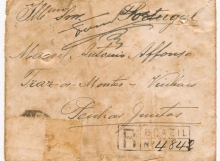 Illmo Snr Portugal
Manoel Antonio Affonso
Traz os Montes - Vinhaes
Penhas Juntas
R BRAZIL
Nº 4842